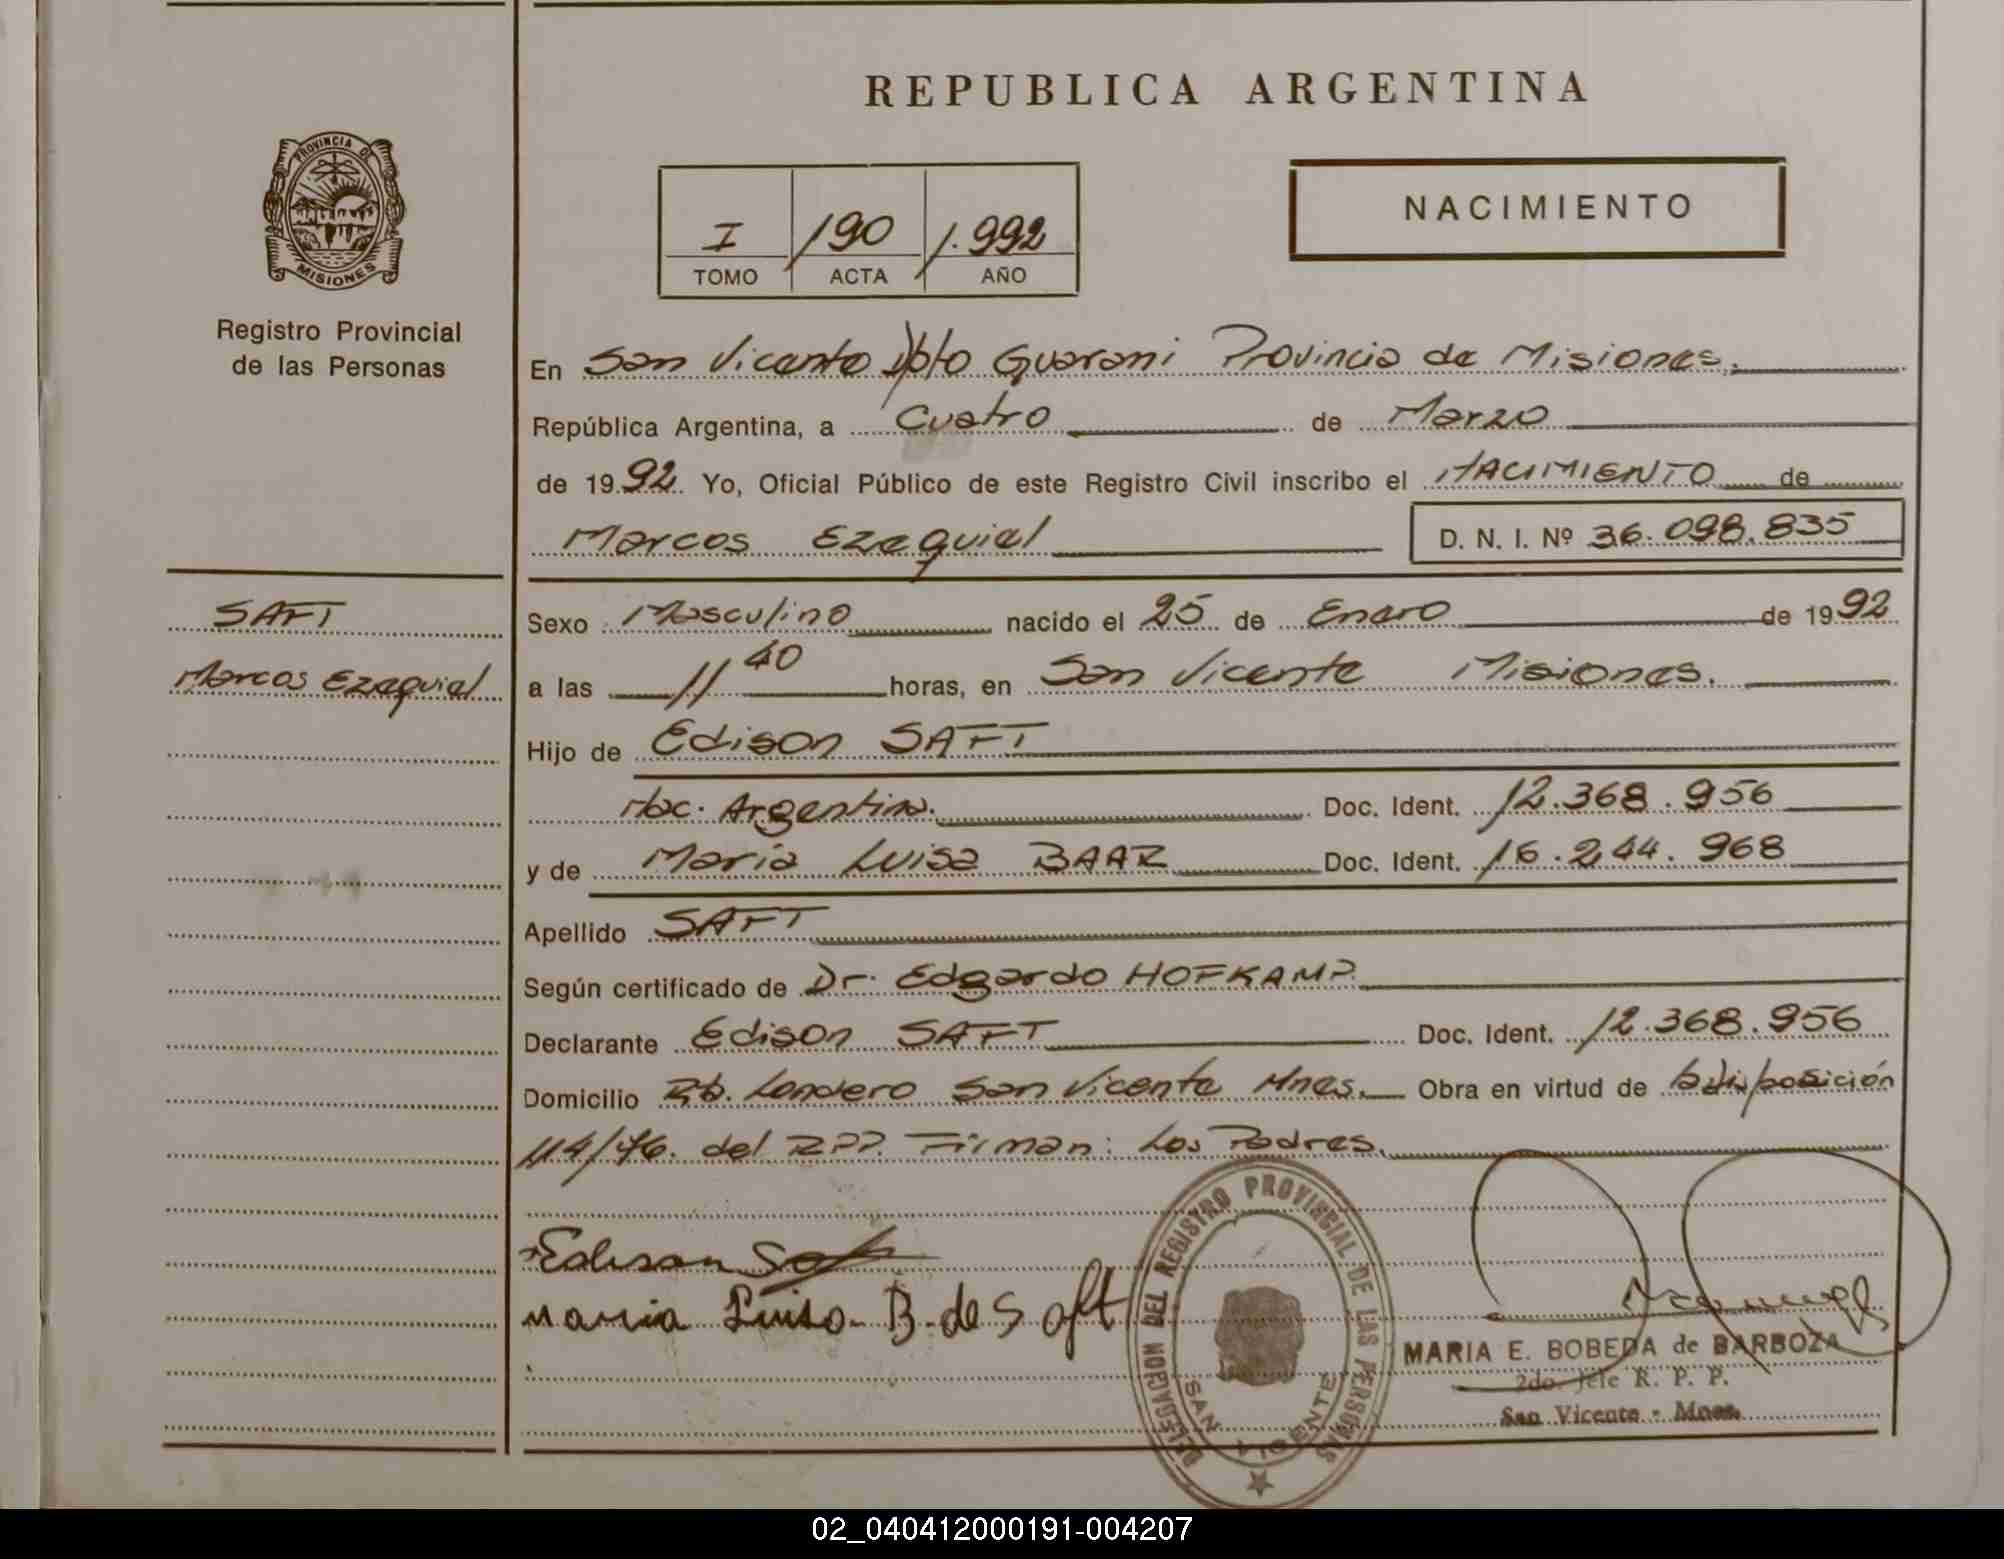 REPUBLICA ARGENTINA
PROVINCIA DE
MISIONES
Registro Provincial
de las Personas
I 190 1.992
TOMO ACTA AÑO
NACIMIENTO
En San Vicente Dpto Guarani Provincia de Misiones.
República Argentina, a Cuatro de Marzo
de 1992 Yo, Oficial Público de este Registro Civil inscribo el NACIMIENTO de
Marcos Ezequiel D. N. I. Nº 36.098.835
SAFT
Marcos Ezequiel
Sexo Masculino nacido el 25 de Enero de 1992
a las 11 40 horas, en San Vicente Misiones.
Hijo de Edison SAFT
Nac. Argentina. Doc. Ident. 12.368.956
y de María Luisa BAAR Doc. Ident. 16.244.968
Apellido SAFT
Según certificado de Dr. Edgardo HOFKAMP.
Declarante Edison SAFT Doc. Ident. 12.368.956
Domicilio Bº. Londero San Vicente Mnes. Obra en virtud de la disposición
114/76. del RPP. Firman: Los Padres.
Edison Saft
maria Luisa B. de Saft
DELEGACION DEL REGISTRO PROVINCIAL DE LAS PERSONAS
SAN VICENTE
MARIA E. BOBEDA de BARBOZA
2do. Jefe R. P. P.
San Vicente - Mnes.
02_040412000191-004207